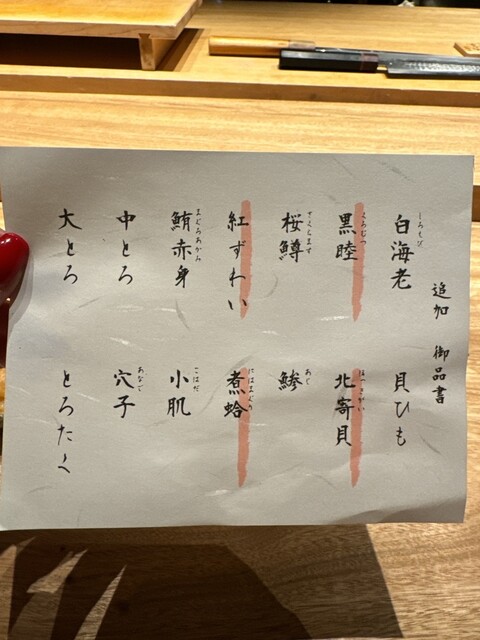 追加 御品書
白海老 しろえび
貝ひも
黒睦 くろむつ
北寄貝 ほっきがい
桜鱒 さくらます
鯵 あじ
紅ずわい
煮蛤 にはまぐり
鮪赤身 まぐろあかみ
小肌 こはだ
中とろ
穴子 あなご
大とろ
とろたく